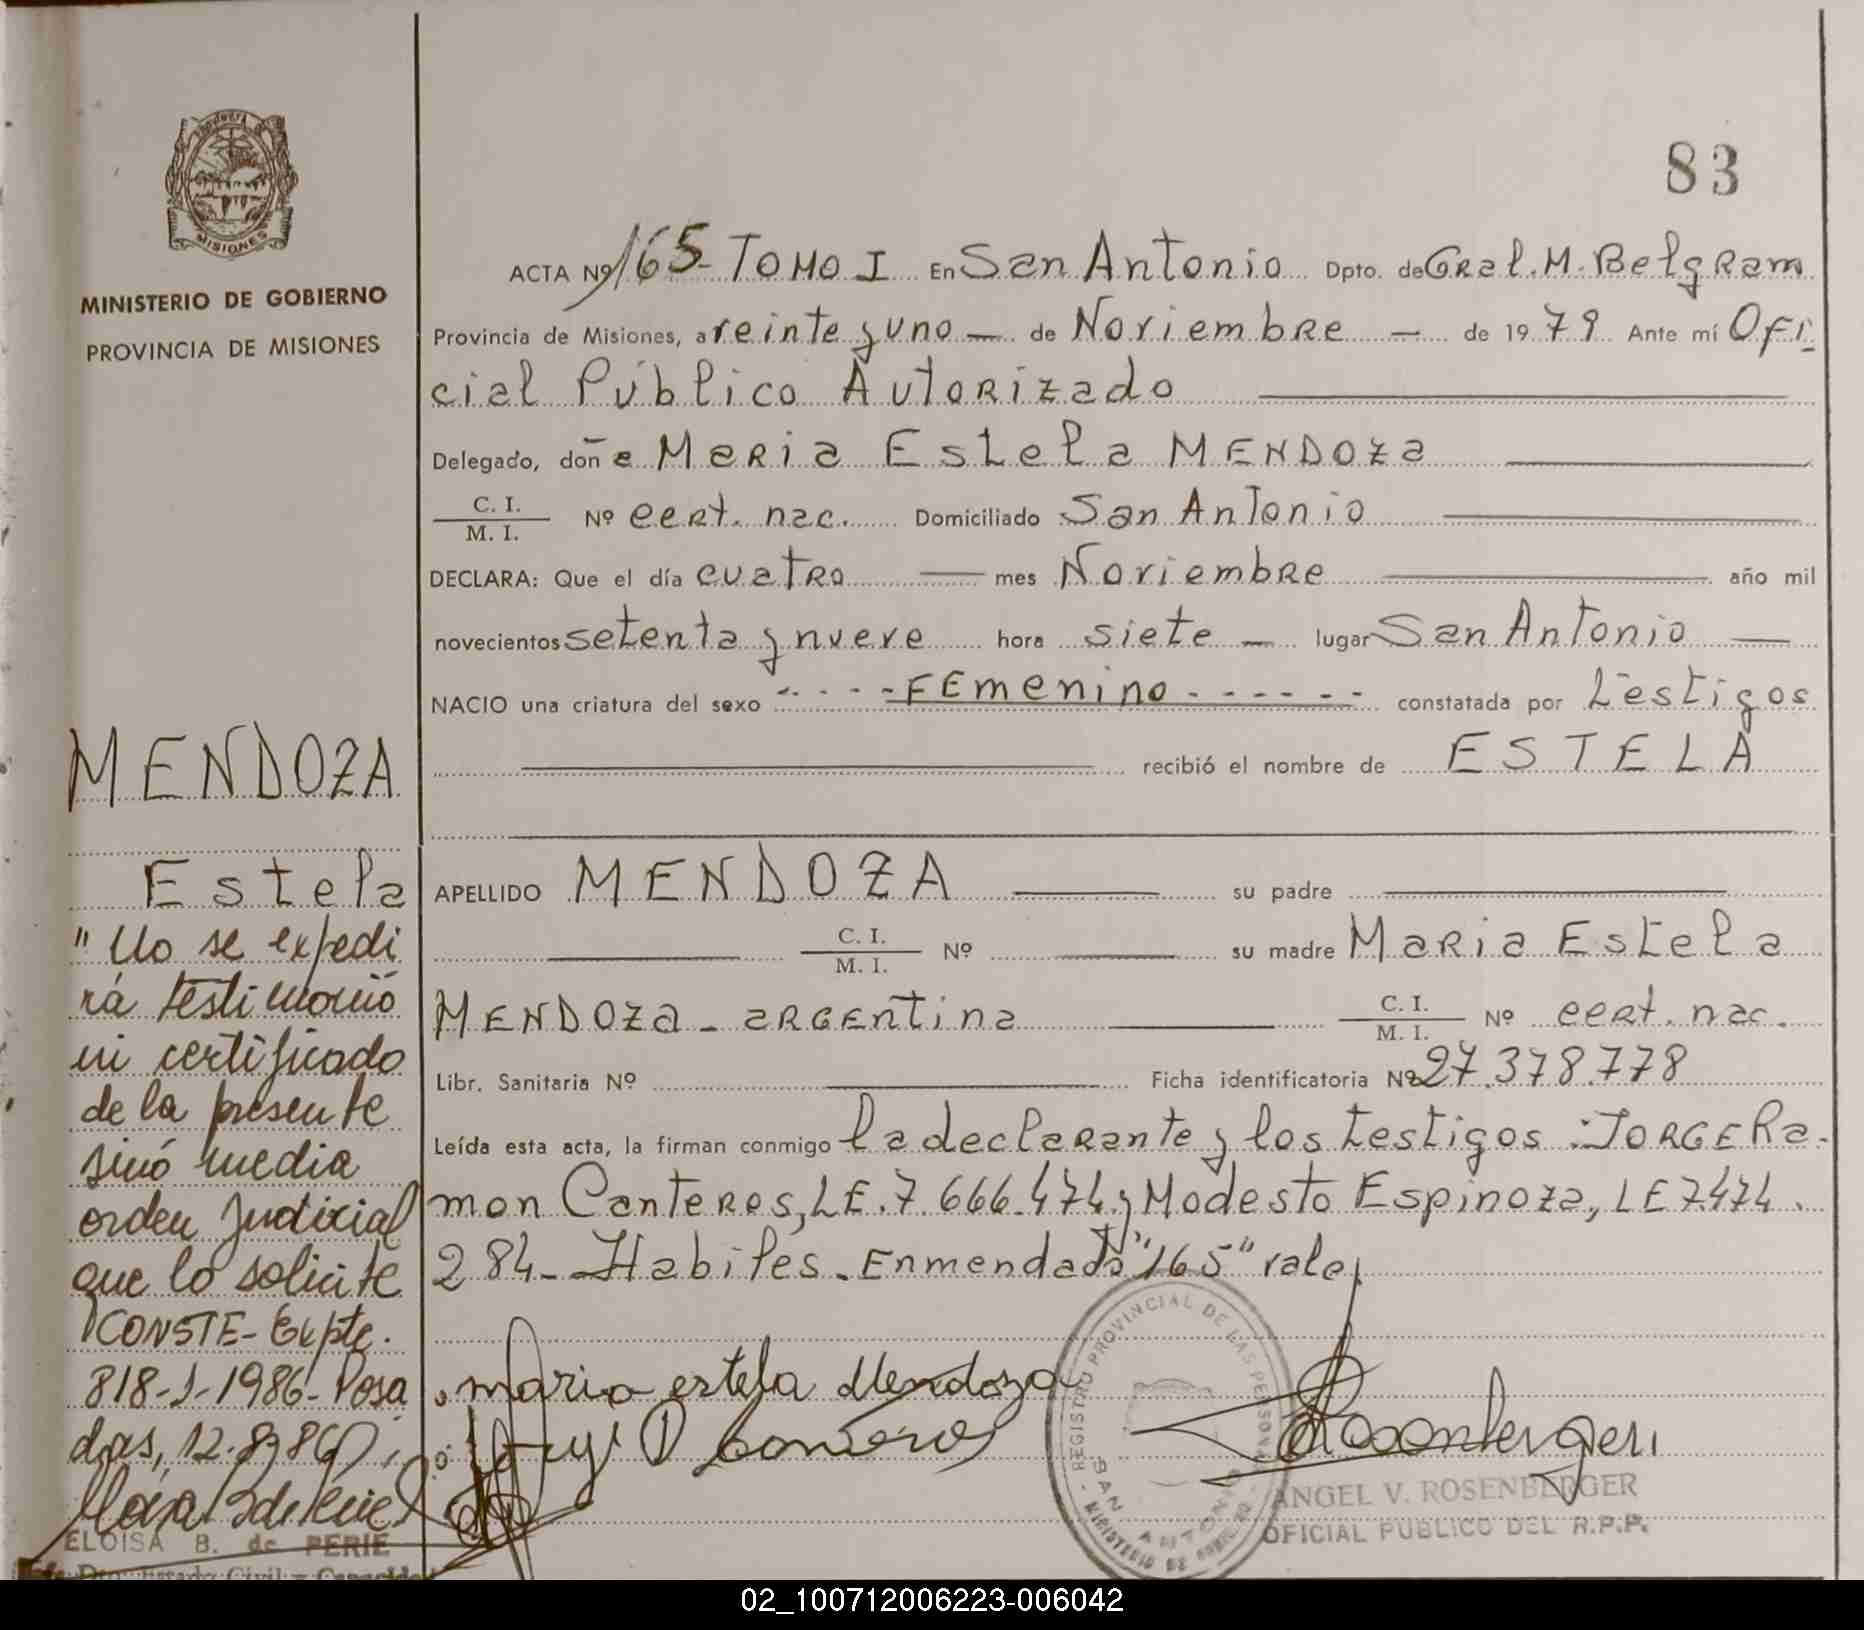 83
MISIONES
MINISTERIO DE GOBIERNO
PROVINCIA DE MISIONES
ACTA Nº 165- TOMO I En San Antonio Dpto. de Gral. M. Belgram
Provincia de Misiones, a veinte y uno — de Noviembre — de 1979 Ante mí Ofi-
cial Público Autorizado
Delegado, doña Maria Estela MENDOZa
C. I.
M. I. Nº cert. nac. Domiciliado San Antonio
DECLARA: Que el día cuatro — mes Noviembre año mil
novecientos setenta y nueve hora siete — lugar San Antonio —
NACIO una criatura del sexo - - - - FEmenino - - - - - - constatada por testigos
recibió el nombre de ESTELA
MENDOZA
Estela
"No se expedi
rá testimonio
ni certificado
de la presente
sinó media
orden Judicial
que lo solicite
CONSTE- Expte.
818-J-1986- Posa
das, 12.8.986
ELOISA B. de PERIE
Dto. Estado Civil y Capacidad
APELLIDO MENDOZA su padre
C. I.
M. I. Nº su madre Maria Estela
MENDOZa - argentina C. I.
M. I. Nº cert. nac.
Libr. Sanitaria Nº Ficha identificatoria Nº 27.378.778
Leída esta acta, la firman conmigo la declarante y los testigos: JORGE Ra-
mon Canteros, LE. 7.666.474 y Modesto Espinoza, LE 7.474.
284- Habiles. Enmendado "165" vale
maria estela Mendoza
REGISTRO PROVINCIAL DE LAS PERSONAS
SAN ANTONIO
ANGEL V. ROSENBERGER
OFICIAL PUBLICO DEL R.P.P.
02_100712006223-006042